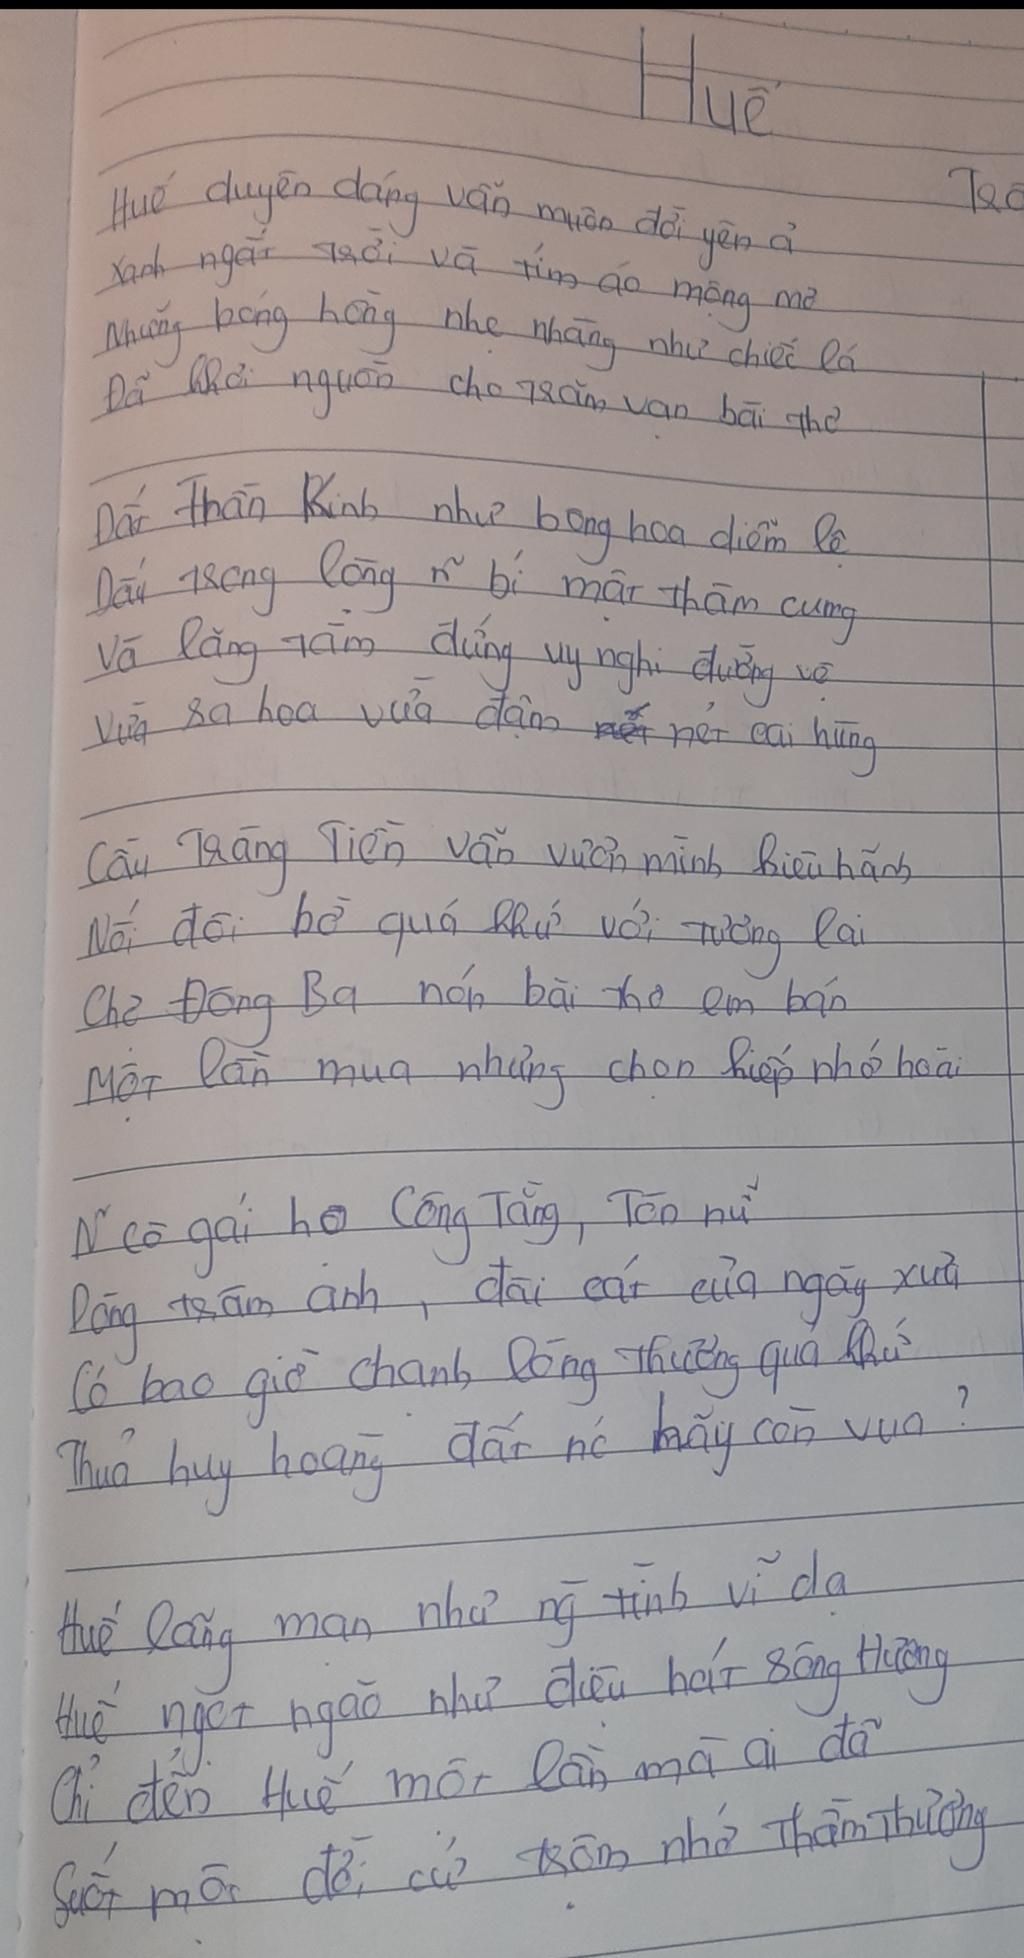 Huế
Trầ
Huế duyên dáng vẫn muôn đời yên ả
Xanh ngát trời và tím áo mộng mơ
Những bóng hồng nhẹ nhàng như chiếc lá
Đã khơi nguồn cho trăm vạn bài thơ
Đất Thần Kinh như bông hoa diễm lệ
Dấu trong lòng n~ bí mật thâm cung
Và lăng tẩm đứng uy nghi đường vệ
Vừa xa hoa vừa đậm nét oai hùng
Cầu Tràng Tiền vẫn vươn mình kiêu hãnh
Nối đôi bờ quá khứ với tương lai
Chợ Đông Ba nón bài thơ em bán
Một lần mua nhưng chọn kiếp nhớ hoài
N~ cô gái họ Công Tằng, Tôn nữ
Dòng trâm anh, đài cát của ngày xưa
Có bao giờ chạnh lòng thương quá khứ
Thuở huy hoàng đất nc' hãy còn vua?
Huế lãng mạn như ng` tình vĩ dạ
Huế ngọt ngào như điệu hát sông Hương
Chỉ đến Huế một lần mà ai đã
Suốt một đời cứ trộm nhớ thầm thương